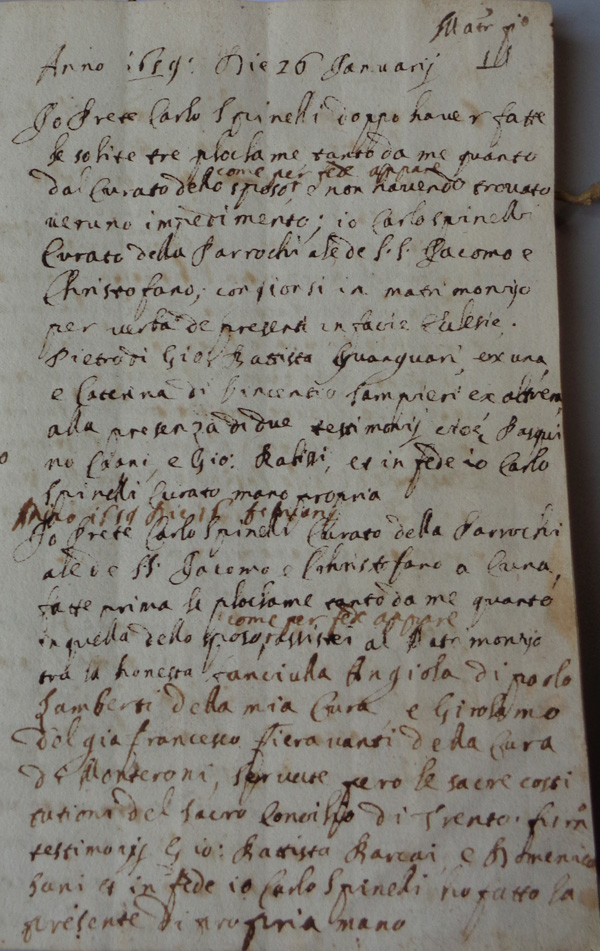 Anno 1659: Die 26 Januarij
Io Prete Carlo Spinelli doppo haver fatte
le solite tre ploclame tanto da me quanto
come per fede appare
dal Curato dello sposo, e non havendo trovato
veruno impedimento; io Carlo Spinelli
Curato della Parrochiale de S.S. Jacomo e
Christofano, congionsi in matrimonijo
per verba de presenti in facie Eclesie.
Pietro di Gio: Battista ex una
e Caterina di Vincentio Sampieri ex altera
alla presenza di due testimonij cioè Pasqui
no e Gio: et in fede io Carlo
Spinelli Curato mano propria
Anno 1659 Die
Io Prete Carlo Spinelli Curato della Parrochi
ale de SS. Jacomo e Christofano a Cuna,
fatte prima le ploclame tanto da me quanto
come per fede appare
in quella dello sposo, assistei al Matrimonijo
tra la honesta fanciulla Angiola di paolo
Lamberti della mia Cura, e Girolamo
del gia francesco Fieravanti della Cura
di Monteroni, servate pero le sacre costi
tutioni del sacro Concilijo di Trento. furn
testimonij Gio: Battista e Domenico
et in fede io Carlo Spinelli ho fatto la
presente di propria mano